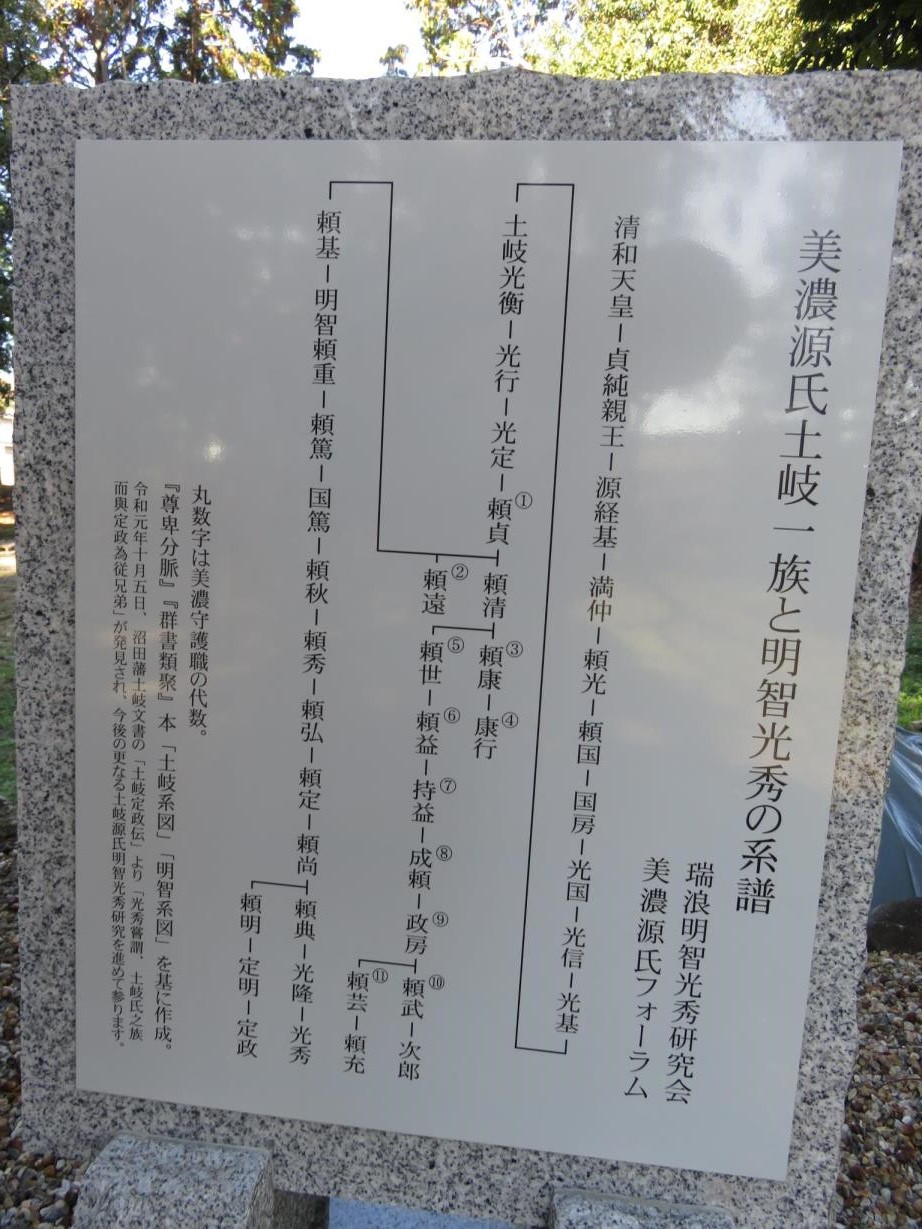 美濃源氏土岐一族と明智光秀の系譜
瑞浪明智光秀研究会
美濃源氏フォーラム
清和天皇ー貞純親王ー源経基ー満仲ー頼光ー頼国ー国房ー光国ー光信ー光基
土岐光衡ー光行ー光定ー①頼貞
頼清
③頼康ー④康行
②頼遠
⑤頼世ー⑥頼益ー⑦持益ー⑧成頼ー⑨政房
⑩頼武ー次郎
⑪頼芸ー頼充
頼基ー明智頼重ー頼篤ー国篤ー頼秋ー頼秀ー頼弘ー頼定ー頼尚
頼典ー光隆ー光秀
頼明ー定明ー定政
丸数字は美濃守護職の代数。
『尊卑分脈』『群書類聚』本「土岐系図」「明智系図」を基に作成。
令和元年十月五日、沼田藩土岐文書の「土岐定政伝」より「光秀嘗謂、土岐氏之族
而與定政為従兄弟」が発見され、今後の更なる土岐源氏明智光秀研究を進めて参ります。